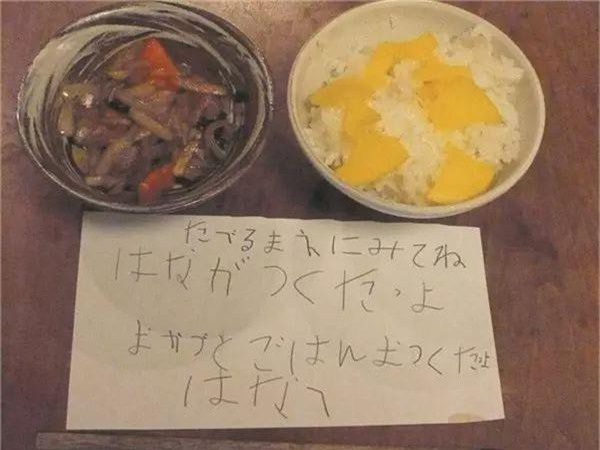 たべるまえにみてね
はながつくたっよ
おかづとごはんおつくたよ
はなへ